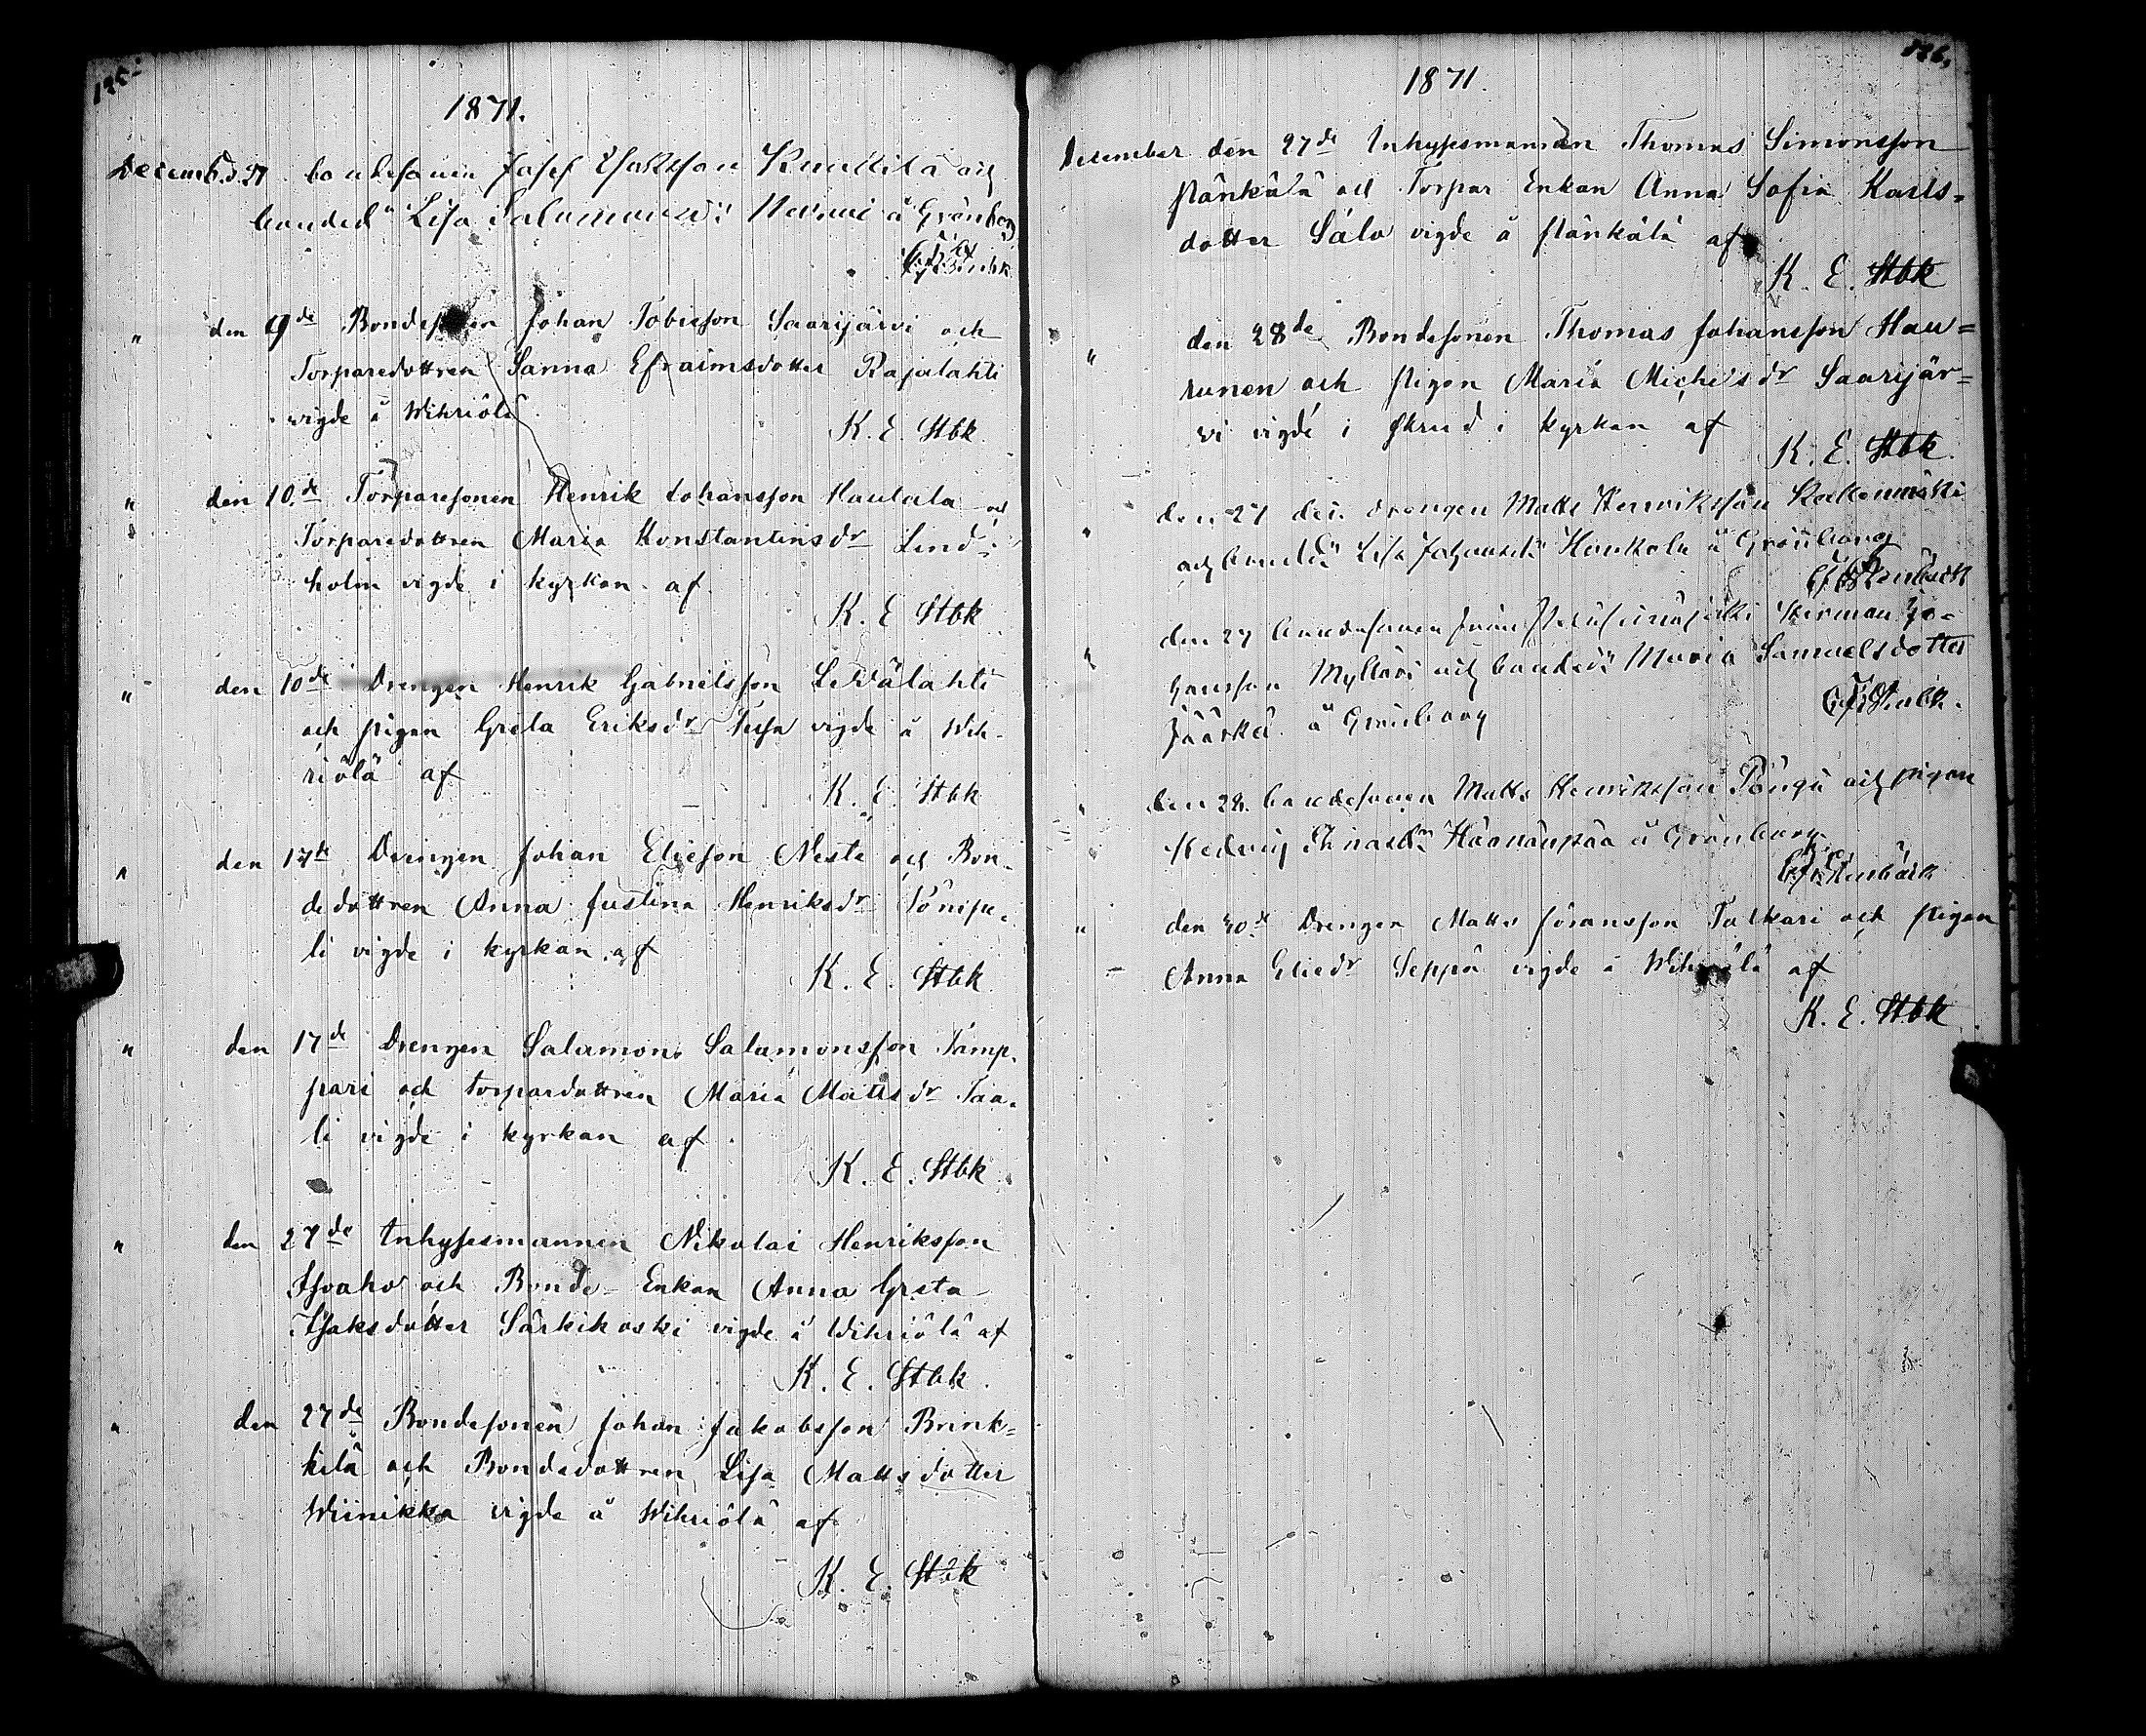 125.
1871.
Decemb. d. 27 bondesonen Josef Isaksson Knuttila och
bonded:n Lisa Salomonsd:r Nevini å Grönborg
den 9de Bondesonen Johan Tobiesson Saarijärvi och
Torparedottren Sanna Efraimsdotter Rajalahti
vigde å Wihriälä
K. E. Stbk
" den 10.de Torparesonen Henrik Johansson Hautala och
Torparedottren Maria Konstantinsdr Lind-
holm vigde i kyrkan af
K. E Stbk
" den 10de Drengen Henrik Gabrielsson Levälahti
och pigan Greta Eriksdr vigde å Wih-
riälä af
K. E. Stbk
" den 17de Drengen Johan Eliesson Neste och Bon-
dedottren Anna Justina Henriksdr
li vigde i kyrkan af
K. E. Stbk
" den 17de Drengen Salomon Salomonsson Tamp-
pari och torpardottren Maria Mattsdr Taa-
li vigde i kyrkan af
K. E. Stbk
" den 27de Inhysesmannen Nikolai Henriksson
Isoaho och Bonde-Enkan Anna Greta
Isaksdotter Särkikoski vigde å Wihriälä af
K. E. Stbk
" den 27de Bondesonen Johan Jakobsson Brink-
kilä och Bondedottren Lisa Mattsdotter
Wiinikka vigde å Wihriälä af
K. E. Stbk
126.
1871.
December den 27de Inhysesmannen Thomas Simonsson
Pänkälä och Torpar Enkan Anna Sofia Karls-
dotter Salo vigde å Pänkälä af
K. E. Stbk
" den 28de Bondesonen Thomas Johansson Hau-
runen och pigan Maria Michelsdr Saarijär-
vi vigde i skrud i kyrkan af
K. E. Stbk.
" den 27 dec. drengen Matts Henriksson
och bonded:n Lisa Johansd:r Haukola å Grönborg
Stenbäck
" den 27 bondesonen från Herman Jo-
hansson Myllari och bonded:n Maria Samuelsdotter
Jäärkä å Grönborg
Stenbck.
" den 28. bondesonen Matts Henriksson och pigan
Hedvig Haavanpää å Grönborg
Stenbäck
" den 30.de Drengen Matts Göransson Talkari och pigan
Anna Eliedr Seppä vigde å Wihriälä af
K. E. Stbk